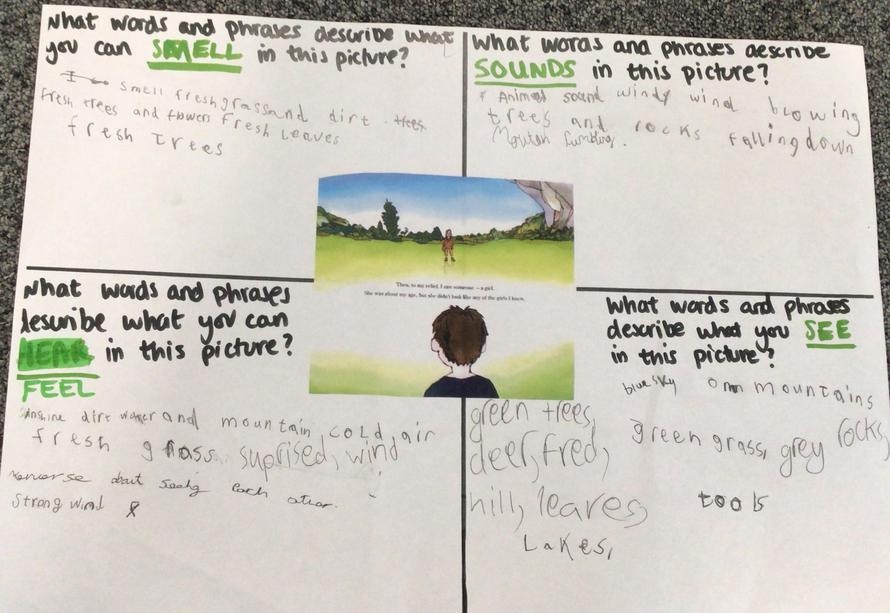 What words and phrases describe what
you can SMELL in this picture?
I smell fresh grass and dirt trees
fresh trees and flowers fresh leaves
fresh trees
What words and phrases describe
SOUNDS in this picture?
Animal sound windy wind blowing
trees and rocks falling down
What words and phrases
describe what you can
HEAR in this picture?
FEEL
Sunshine dirt water and mountain, cold, air
fresh grass suprised, wind
about each
Strong wind
Then, to my relief, I saw someone – a girl.
She was about my age, but she didn't look like any of the girls I knew.
What words and phrases
describe what you SEE
in this picture?
blue sky mountains
green trees,
green grass, grey rocks,
deer, fred,
hill, leaves, tools
Lakes,